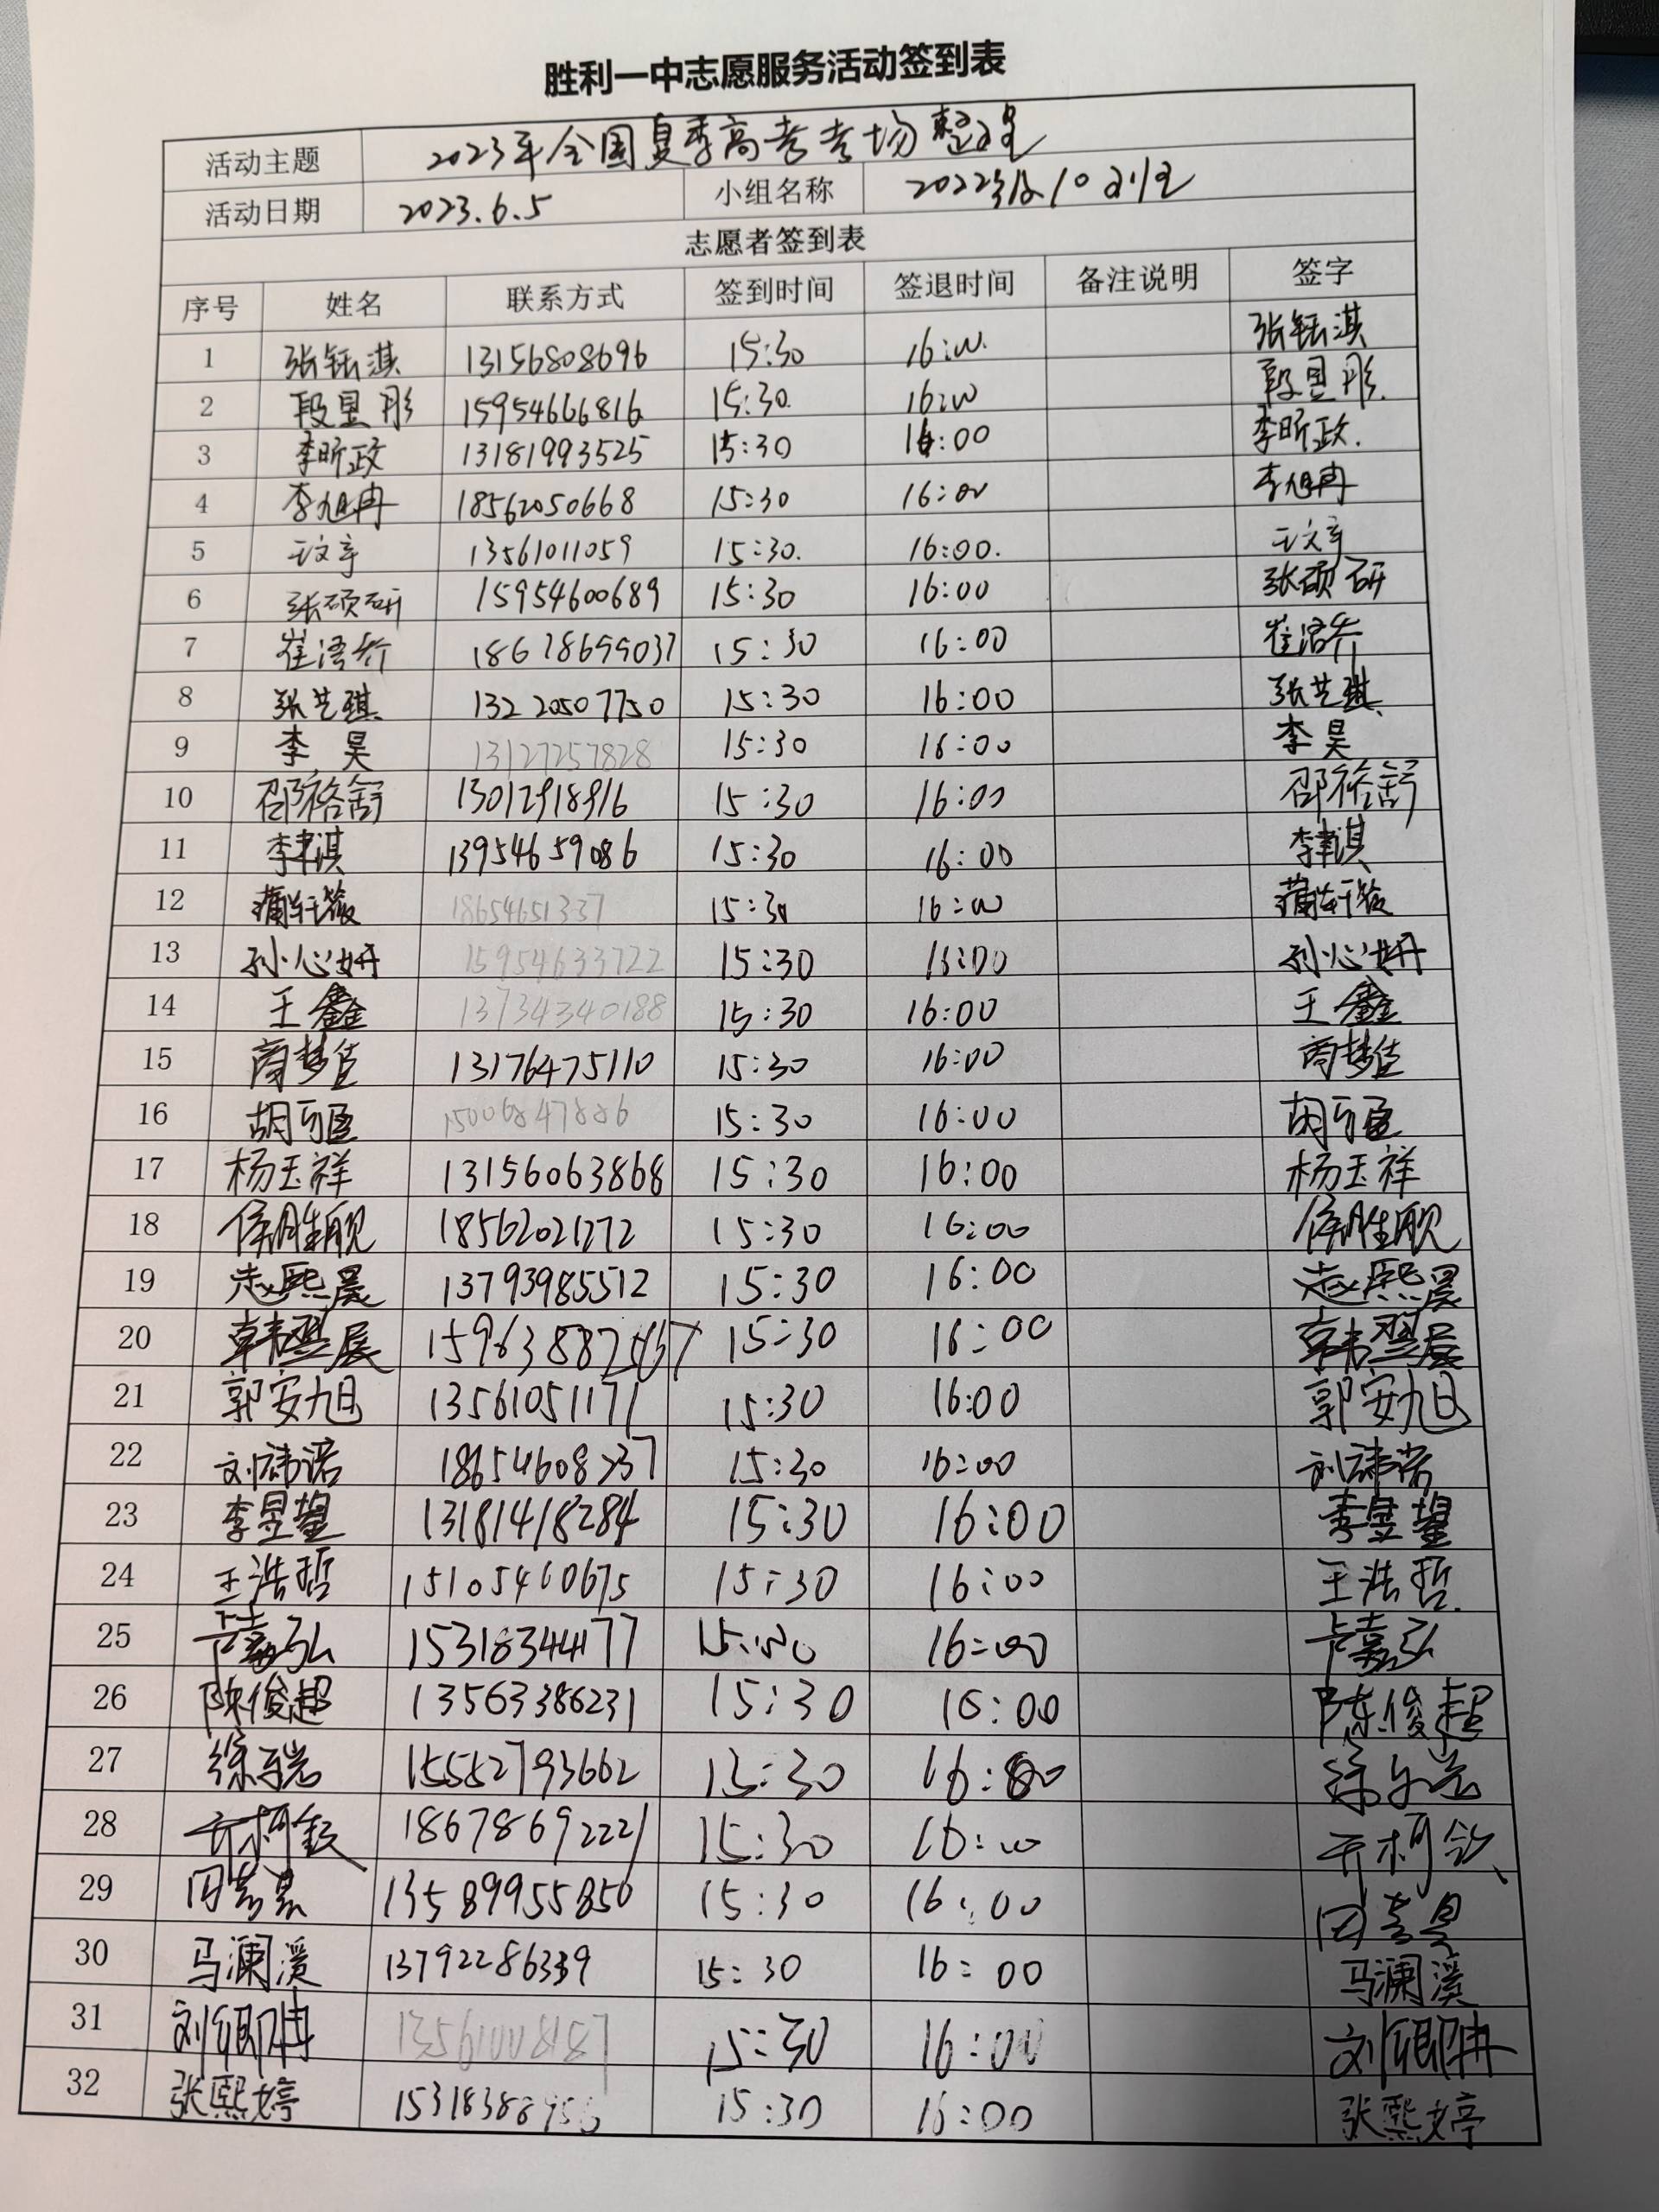 胜利一中志愿服务活动签到表
活动主题 2023年全国夏季高考考场整理
活动日期 2023.6.5 小组名称 2022级10
志愿者签到表
序号 姓名 联系方式 签到时间 签退时间 备注说明 签字
1 张钰淇 13156808696 15:30 16:00. 张钰淇
2 段昱彤 15954666816 15:30. 16:00 段昱彤.
3 李昕政 13181993525 15:30 16:00 李昕政.
4 李旭冉 18562050668 15:30 16:00 李旭冉
5 13561011059 15:30. 16:00.
6 张硕研 15954600689 15:30 16:00 张硕研
7 18678699037 15:30 16:00
8 张艺琪 13220507750 15:30 16:00 张艺琪
9 李昊 13127257828 15:30 16:00 李昊
10 邵裕舒 13012918916 15:30 16:00 邵裕舒
11 13954659086 15:30 16:00
12 18654651337 15:30 16:00
13 孙心妍 15954633722 15:30 16:00 孙心妍
14 王鑫 13734340188 15:30 16:00 王鑫
15 商梦佳 13176475110 15:30 16:00 商梦佳
16 15006847886 15:30 16:00
17 杨玉祥 13156063868 15:30 16:00 杨玉祥
18 侯胜舰 18562021272 15:30 16:00 侯胜舰
19 赵熙晨 13793985512 15:30 16:00 赵熙晨
20 15:30 16:00
21 郭安旭 13561051171 15:30 16:00 郭安旭
22 刘祎诺 18654608737 15:30 16:00 刘祎诺
23 李昱瑾 13181418284 15:30 16:00 李昱瑾
24 王浩哲 15105460675 15:30 16:00 王浩哲.
25 卞嘉弘 15318344177 15:30 16:00 卞嘉弘
26 陈俊超 13563386231 15:30 16:00 陈俊超
27 15552793662 15:30 16:00
28 亓柯钦 18678692221 15:30 16:00 亓柯钦
29 13589955850 15:30 16:00
30 马澜溪 13792286339 15:30 16:00 马澜溪
31 刘卿冉 13561008187 15:30 16:00 刘卿冉
32 张熙婷 15318388956 15:30 16:00 张熙婷